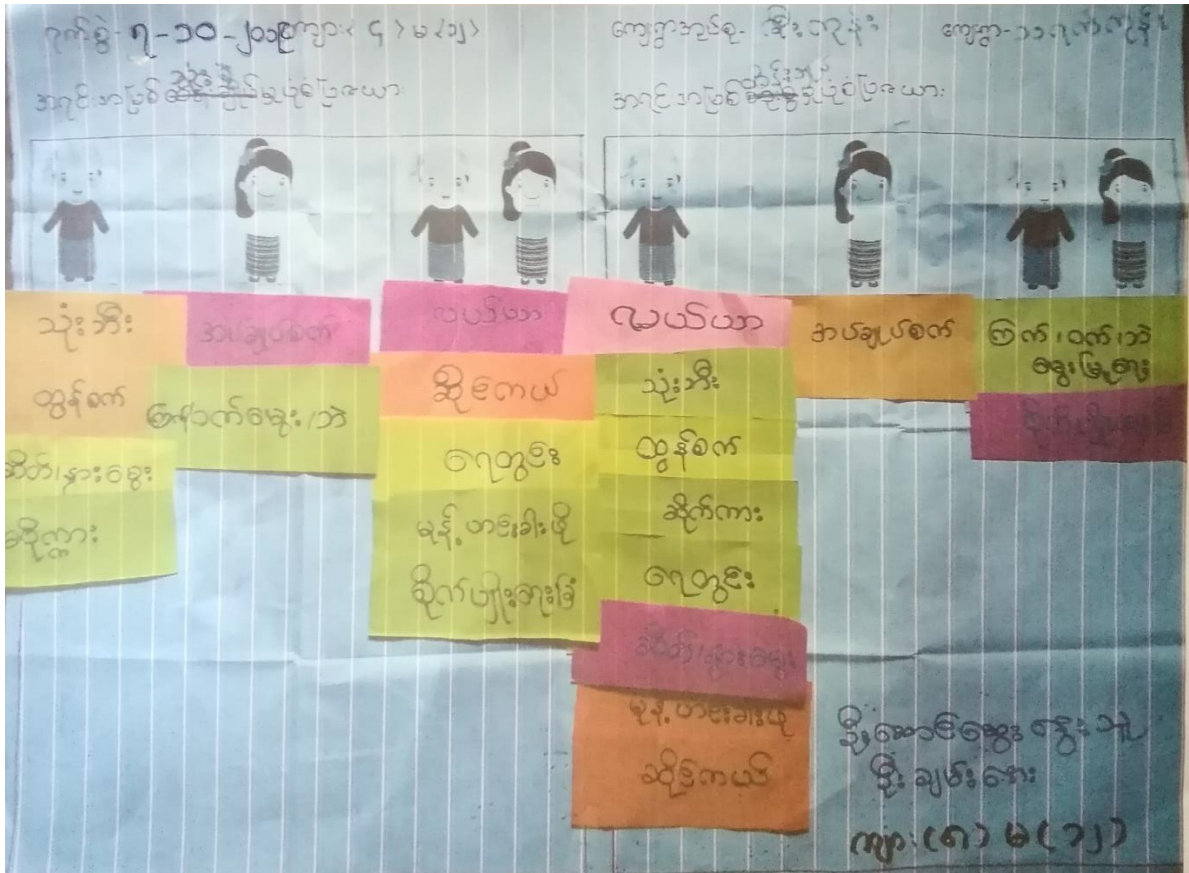 ရက်စွဲ- ၇-၁၀-၂၀၁၉ ကျား(၄)မ(၁၂)
ကျေးရွာအုပ်စု-
ကျေးရွာ-
အရင်းအမြစ် သုံးစွဲမှုပုံစံပြဇယား
အရင်းအမြစ် ထိန်းချုပ်မှုပုံစံပြဇယား
သုံးဘီး
ထွန်စက်
ဆိတ်/နွားမွေး
အပ်ချုပ်စက်
ကြက်/ဝက်မွေး/ဘဲ
လယ်ယာ
ဆိုင်ကယ်
ရေတွင်း
မုန့်ဟင်းခါးဖို
စိုက်ပျိုးရေးခြံ
လယ်ယာ
သုံးဘီး
ထွန်စက်
ဆိုက်ကား
ရေတွင်း
ဆိတ်/နွားမွေး
မုန့်ဟင်းခါးဖို
ဆိုင်ကယ်
အပ်ချုပ်စက်
ကြက်၊ဝက်၊ဘဲ
မွေးမြူရေး
ဦးဆောင်ဆွေးနွေးသူ
ကျား(၈)မ(၁၂)